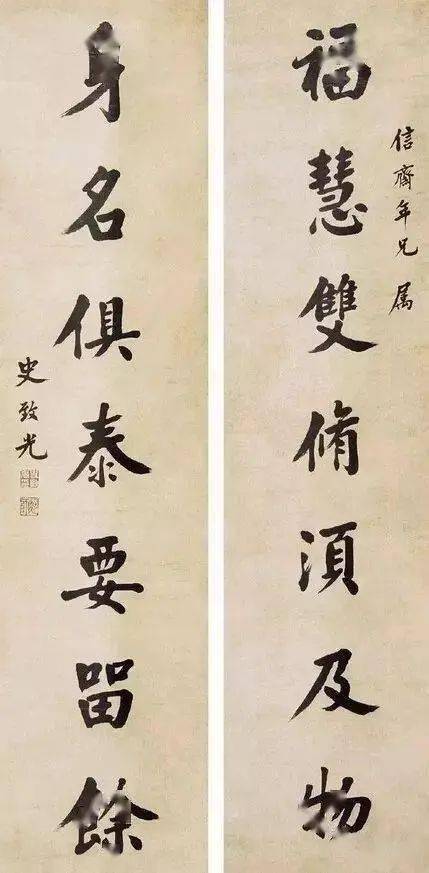 信齋年兄属
福慧雙脩湏及物
身名俱泰要㽞餘
史致光